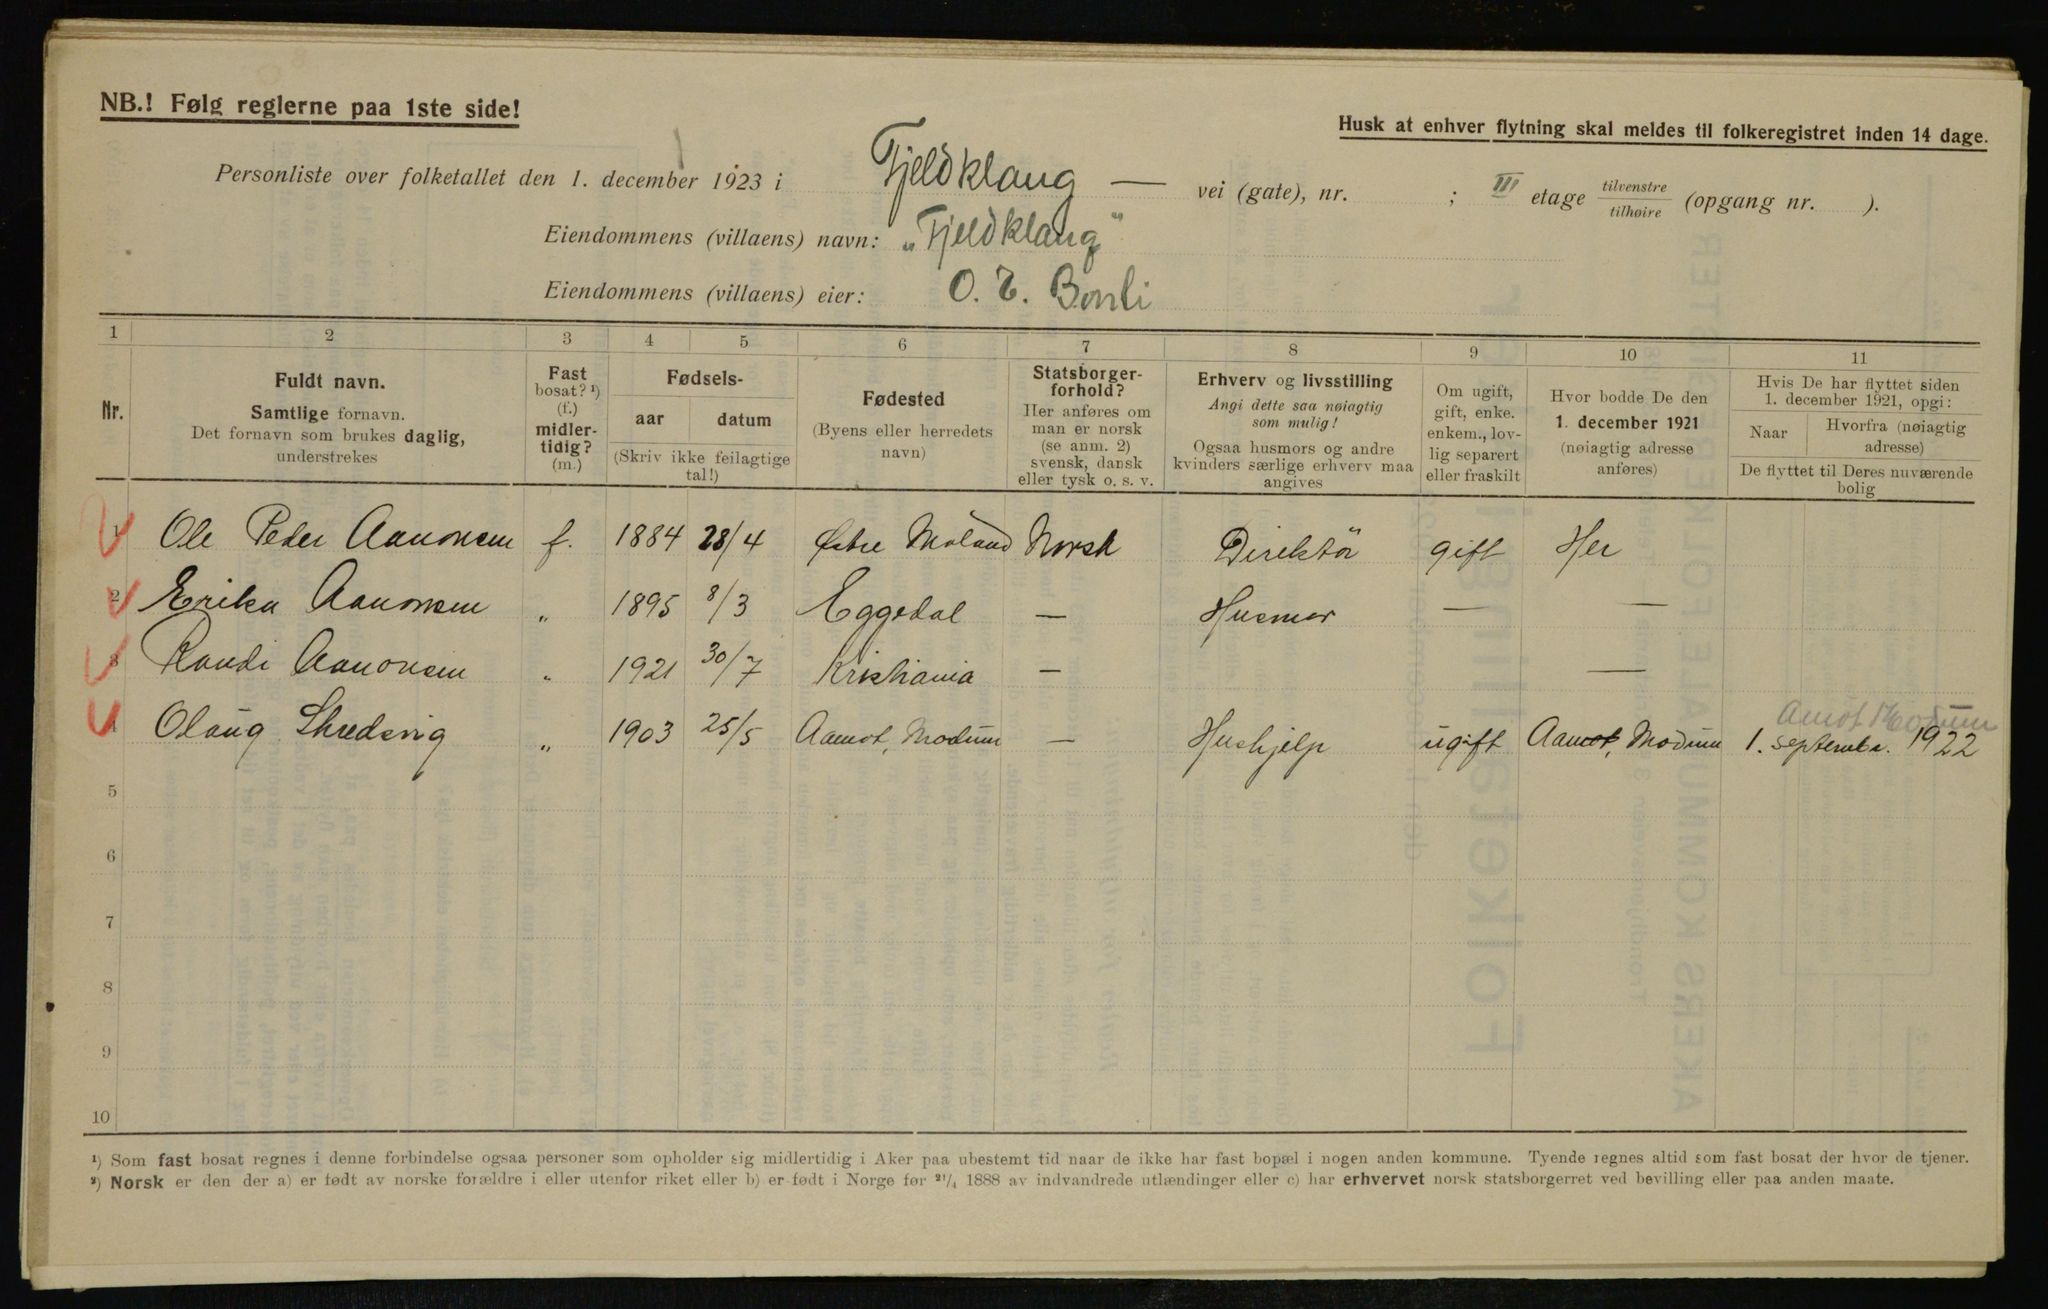 NB.! Følg reglerne paa 1ste side!
Husk at enhver flytning skal meldes til folkeregistret inden 14 dage.
Personliste over folketallet den 1. december 1923 i Fjeldklang — vei (gate), nr. ; III etage tilvenstre tilhøire (opgang nr. ).
Eiendommens (villaens) navn: „Fjeldklang"
Eiendommens (villaens) eier: O. T. Bonli
1 2 3 4 5 6 7 8 9 10 11
Nr.
Fuldt navn.
Samtlige fornavn.
Det fornavn som brukes daglig,
understrekes
Fast
bosat? ¹)
(f.)
midler-
tidig?
(m.)
Fødsels-
aar datum
(Skriv ikke feilagtige
tal!)
Fødested
(Byens eller herredets
navn)
Statsborger-
forhold?
Her anføres om
man er norsk
(se anm. 2)
svensk, dansk
eller tysk o. s. v.
Erhverv og livsstilling
Angi dette saa nøiagtig
som mulig!
Ogsaa husmors og andre
kvinders særlige erhverv maa
angives
Om ugift,
gift, enke.
enkem., lov-
lig separert
eller fraskilt
Hvor bodde De den
1. december 1921
(nøiagtig adresse
anføres)
Hvis De har flyttet siden
1. december 1921, opgi:
Naar Hvorfra (nøiagtig
adresse)
De flyttet til Deres nuværende
bolig
1 Ole Peder Aanonsen f. 1884 28/4 Østre Moland Norsk Direktör gift Her
2 Erika Aanonsen " 1895 8/3 Eggedal — Husmor — —
3 Randi Aanonsen " 1921 30/7 Kristiania — —
Amot Modum
4 Olaug Skredsvig " 1903 25/5 Aamot, Modum — Hushjelp ugift Aamot, Modum 1. septembr. 1922
5
6
7
8
9
10
¹) Som fast bosat regnes i denne forbindelse ogsaa personer som opholder sig midlertidig i Aker paa ubestemt tid naar de ikke har fast bopæl i nogen anden kommune. Tyende regnes altid som fast bosat der hvor de tjener.
²) Norsk er den der a) er født av norske forældre i eller utenfor riket eller b) er født i Norge før 21/4 1888 av indvandrede utlændinger eller c) har erhvervet norsk statsborgerret ved bevilling eller paa anden maate.